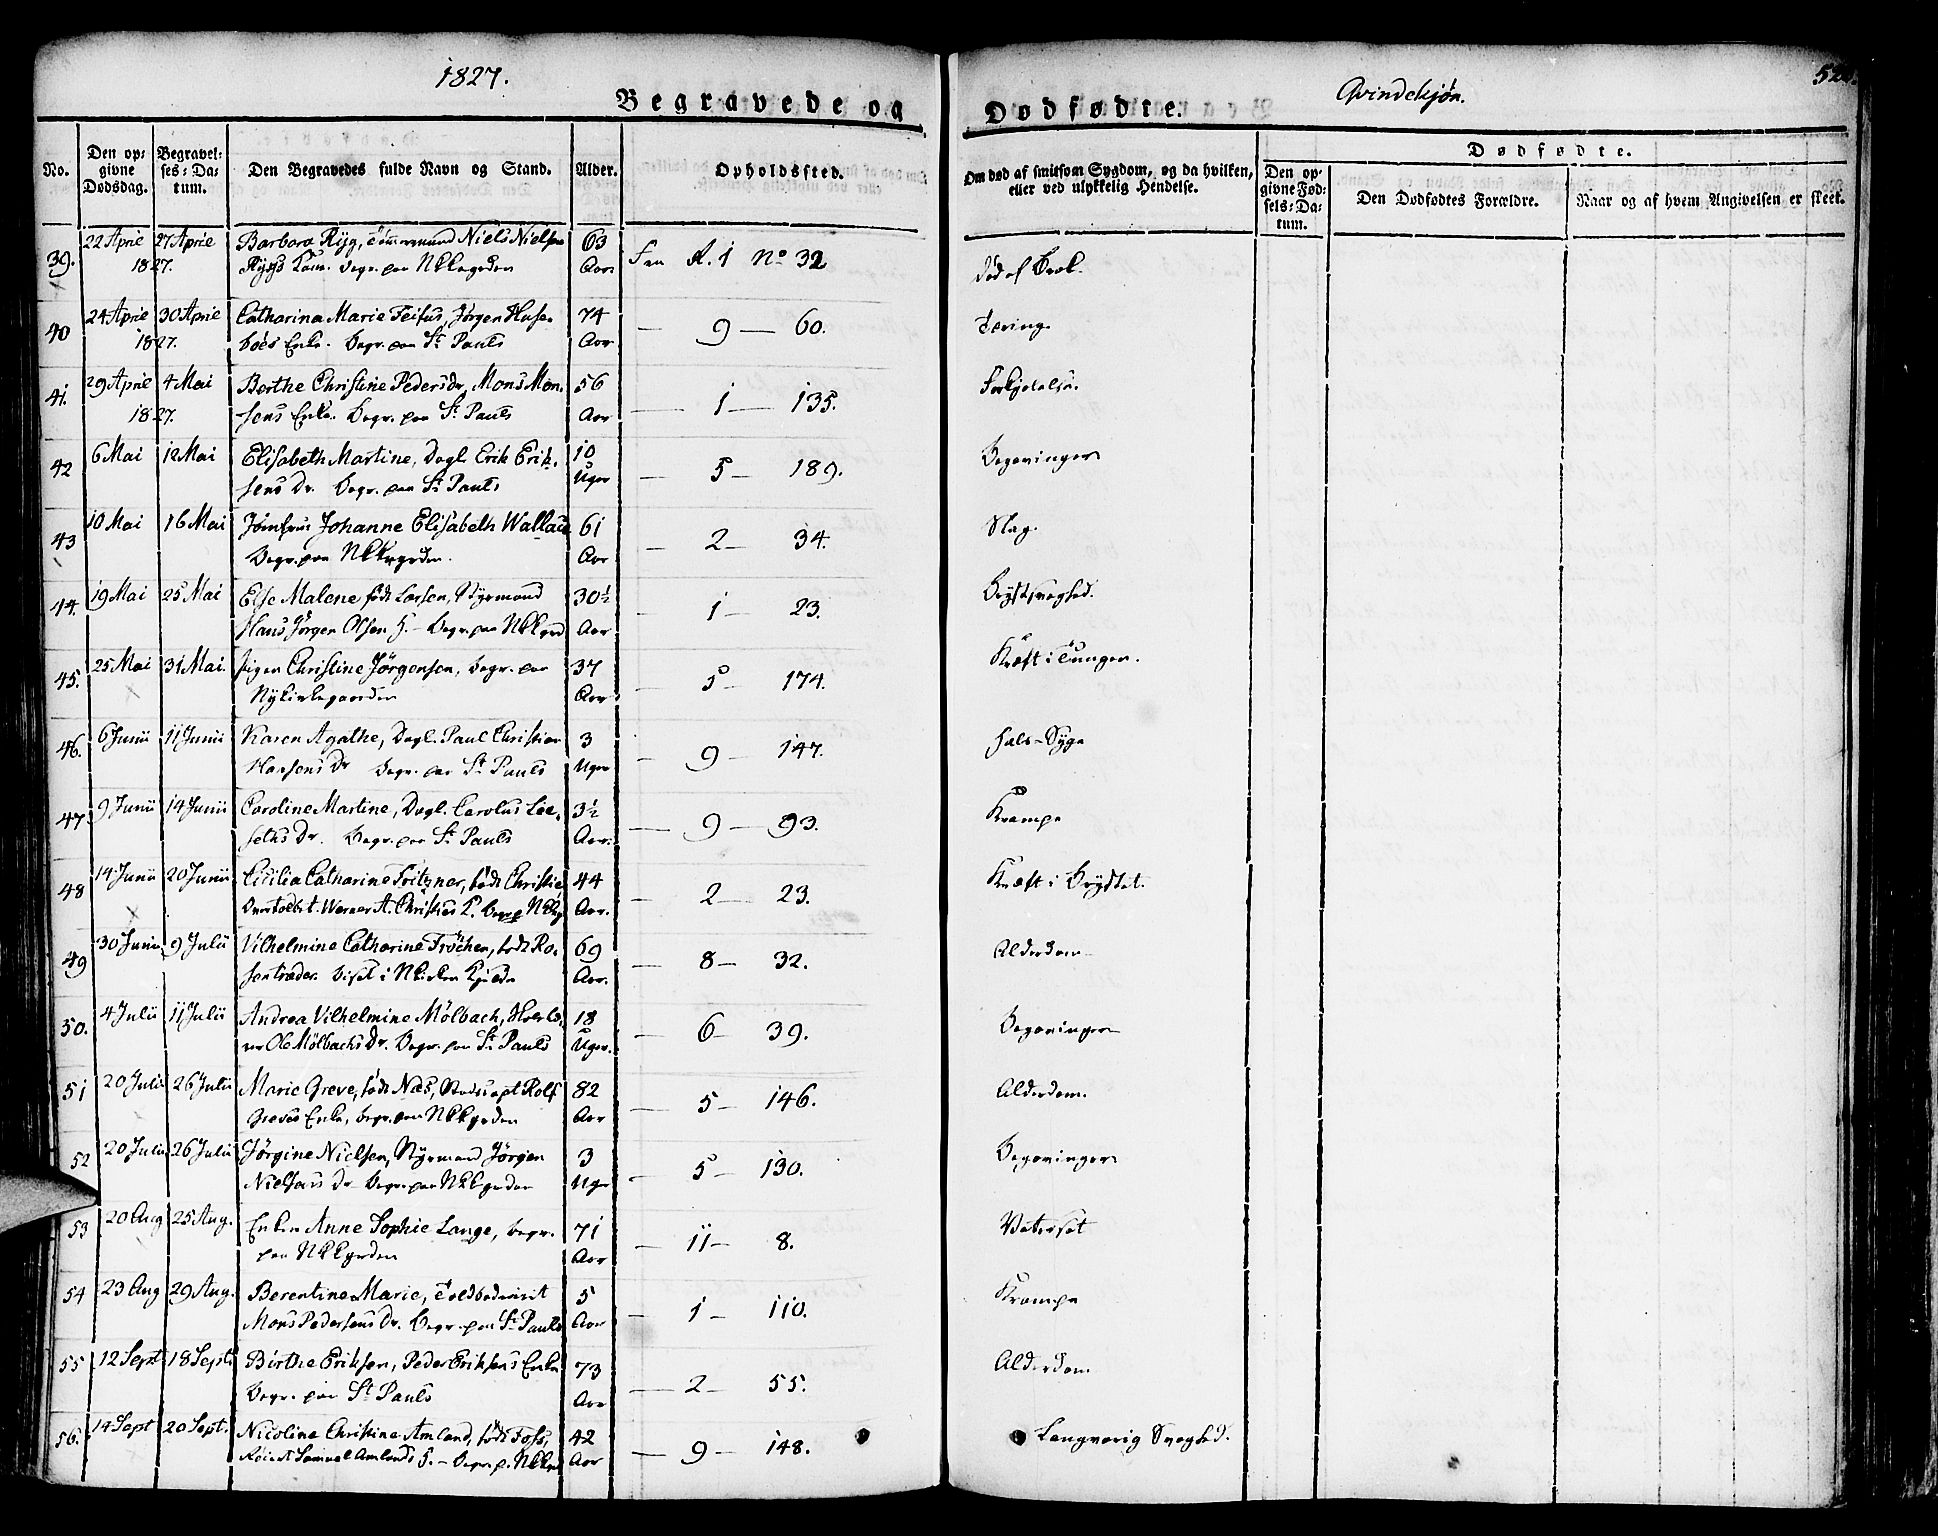 1827.
Begravede og
Dødfødte.
Qvindekjøn.
No.
Den opgivne Dødsdag.
Begravelses-Datum.
Den Begravedes fulde Navn og Stand.
Alder.
Opholdssted.
Om død af smitsom Sygdom, og da hvilken, eller ved ulykkelig Hendelse.
Dødfødte.
Den opgivne Fødsels-Datum.
Den Dødfødtes Forældre.
Naar og af hvem Angivelsen er skeet.
39. 22 April 27 April Barbara Ryg, Tømmermand Niels Nielsen 63
1827. Rygs Kone. Begr. paa Nkkgrden Aar R. 1 No 32 død af Brok.
40 24 April 30 April Catharina Marie Feifus, Jørgen Huse- 74
1827. boes Enke. Begr. paa St Pauls Aar — 9 — 60. Tæring.
41. 29 April 4 Mai Berthe Christine Pedersdr, Mons Mon- 56
1827. sens Enke. Begr. paa St Pauls Aar — 1 — 135. Forkjølelse.
42 6 Mai 12 Mai Elisabeth Martine, Dagl. Erik Erik- 10
sens Dr. Begr. paa St Pauls Uger — 5 189. Begavinger
43 10 Mai 16 Mai Jomfrue Johanne Elisabeth Wallace 61
Begr. paa Nkkgrden. Aar — 2 — 34. Slag.
44. 19 Mai 25 Mai Else Malene født Larsen, Styrmand 30½
Hans Jørgen Olsen H. — Begr. paa Nkkgrd Aar — 1 — 23. Brystsvaghed.
45. 25 Mai 31 Mai. Pigen Christine Jørgensen, Begr. paa 37
Nykirkegaarden Aar — 5 — 174. Kræft i Tungen.
46. 6 Junii 11 Junii Karen Agathe, Dagl. Paul Christian 3
Hansens Dr Begr. paa St Pauls Uger — 9 — 147. Hals-Syge
47. 9 Junii 14 Junii Caroline Martine, Dagl. Carolus Lee- 3½
seths Dr. Begr. paa St Pauls Aar. — 9 — 93. Krampe
48 14 Junii 20 Junii Cicilia Catharine Fritzner, født Christie 44
Werner A. Christies Begr. p Nkkg Aar. — 2 — 23. Kræft i Brystet.
49 30 Junii 9 Julii Vilhelmine Catharine Fröchen, født Ro- 69
sentræder. Bisat i Nkirken Aar. — 8 — 32. Alderdom
50. 4 Julii 11 Julii Andrea Vilhelmine Mølbach, 18
Ole Mølbachs Dr. Begr. paa St Pauls Uger. — 6 — 39. Begavinger
51 20 Julii 26 Julii Marie Greve, født Næs, Rolf 82
Greves Enke, begr. paa Nkkgrden Aar — 5 — 146. Alderdom.
52 20 Julii 26 Julii Jørgine Nielsen, Styrmand Jørgen 3
Nielsens Dr Begr. paa Nkkgrden Uger — 5 — 130. Begavinger
53 20 Aug 25 Aug. Enken Anne Sophie Lange, begr. 71
paa Nkkgrden Aar — 11 — 8. Vatersot
54 23 Aug 29 Aug. Berentine Marie, Toldbodevisit 5
Mons Pedersens Dr. Begr. paa St Pauls Aar — 1 — 110. Krampe
55 12 Sept 18 Sept. Birthe Eriksen, Peder Eriksens Enke 73
Begr. paa St Pauls Aar — 2 — 55. Alderdom
56. 14 Sept 20 Sept. Nicoline Christine Amland, født Foss, 42
Samuel Amlands H. — begr. p. Nkkgr Aar — 9 — 148. Langvarig Svaghed.